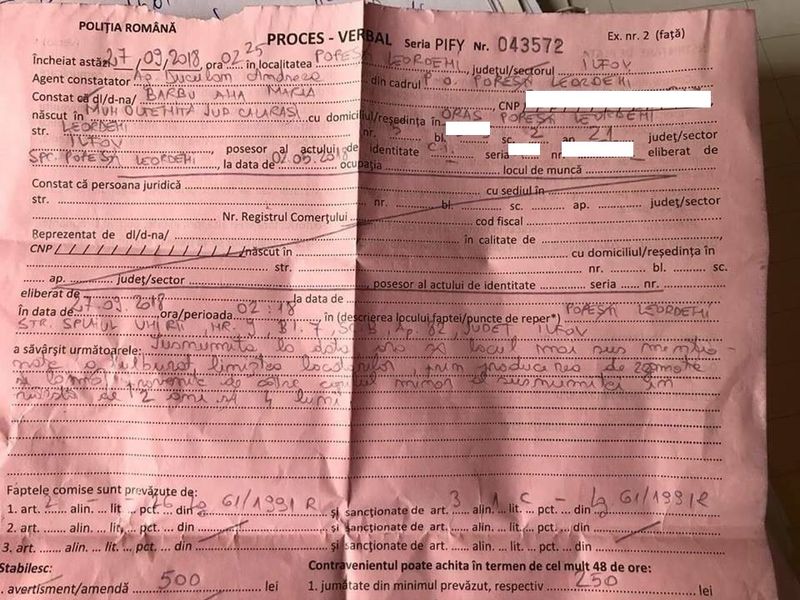 POLIȚIA ROMÂNĂ
PROCES - VERBAL Seria PIFY Nr. 043572 Ex. nr. 2 (față)
Încheiat astăzi 27/09/2018 ora 02 25 în localitatea POPEȘTI LEORDENI, județul/sectorul ILFOV
Agent constatator Ag. Andreea din cadrul P.O. POPEȘTI LEORDENI
Constat că dl/d-na/ BARBU ANA MARIA CNP
născut în MUN OLTENIȚA JUD CĂLĂRAȘI cu domiciliul/reședința în ORAȘ POPEȘTI LEORDENI
str. LEORDENI nr. 5 bl. sc. 2 ap. 21 județ/sector
ILFOV, posesor al actului de identitate C.I. seria nr. eliberat de
SPC POPEȘTI LEORDENI, la data de 02.05.2018 ocupația locul de muncă
Constat că persoana juridică cu sediul în
str. nr. bl. sc. ap. județ/sector
Nr. Registrul Comerțului cod fiscal
Reprezentat de dl/d-na/ în calitate de
CNP / / / / / / / / / / / / / /născut în cu domiciliul/reședința în
str. nr. bl. sc.
ap. județ/sector posesor al actului de identitate seria nr.
eliberat de la data de
În data de 27.09.2018 ora/perioada 02:18, în (descrierea locului faptei/puncte de reper*) POPEȘTI LEORDENI
STR. SPLAIUL UNIRII, NR. 9 Bl. 7, Ap. 82, JUDEȚ ILFOV
a săvârșit următoarele: Susnumita la data ora și locul mai sus mențio-
nate a tulburat liniștea locatarilor, prin producerea de zgomote
și provenite de către copilul minor al susnumitei în
vârstă de 2 ani și 4 luni
Faptele comise sunt prevăzute de:
1. art. 2 alin. lit pct. din 61/1991 R și sancționate de art. 3 alin. 1 lit. c pct. - din Lg 61/1991R
2. art. alin. lit. pct. din și sancționate de art. alin. lit. pct. din
3. art. alin. lit. pct. din și sancționate de art. alin. lit. pct. din
Stabilesc: Contravenientul poate achita în termen de cel mult 48 de ore:
avertisment/amendă 500 lei 1. jumătate din minimul prevăzut, respectiv 250 lei